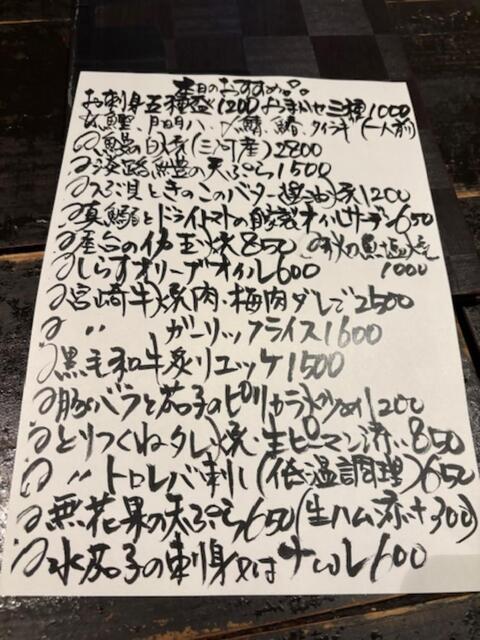 本日のおすすめ
お刺身五種盛1200 おまかせ三種1000
鰹、月日貝、〆鯖、鰆、タイラギ(一人前)
鰻の白焼(三河産)2800
淡路 鱧の天ぷら1500
つぶ貝ときのこのバター醤油焼1200
真鰯とドライトマトの自家製オイルサーデン650
屋台のイカ玉焼850 秋の魚塩焼
しらすオリーブオイル600 1000
宮崎牛焼肉・梅肉ダレで2500
〃 ガーリックライス1600
黒毛和牛炙りユッケ1500
豚バラと茄子のピリカラ1200
とりつくねタレ焼・生ピーマン添850
〃 トロレバ刺し(低温調理)650
無花果の天ぷら650(生ハム添+300)
水茄子の刺身又はナムル600